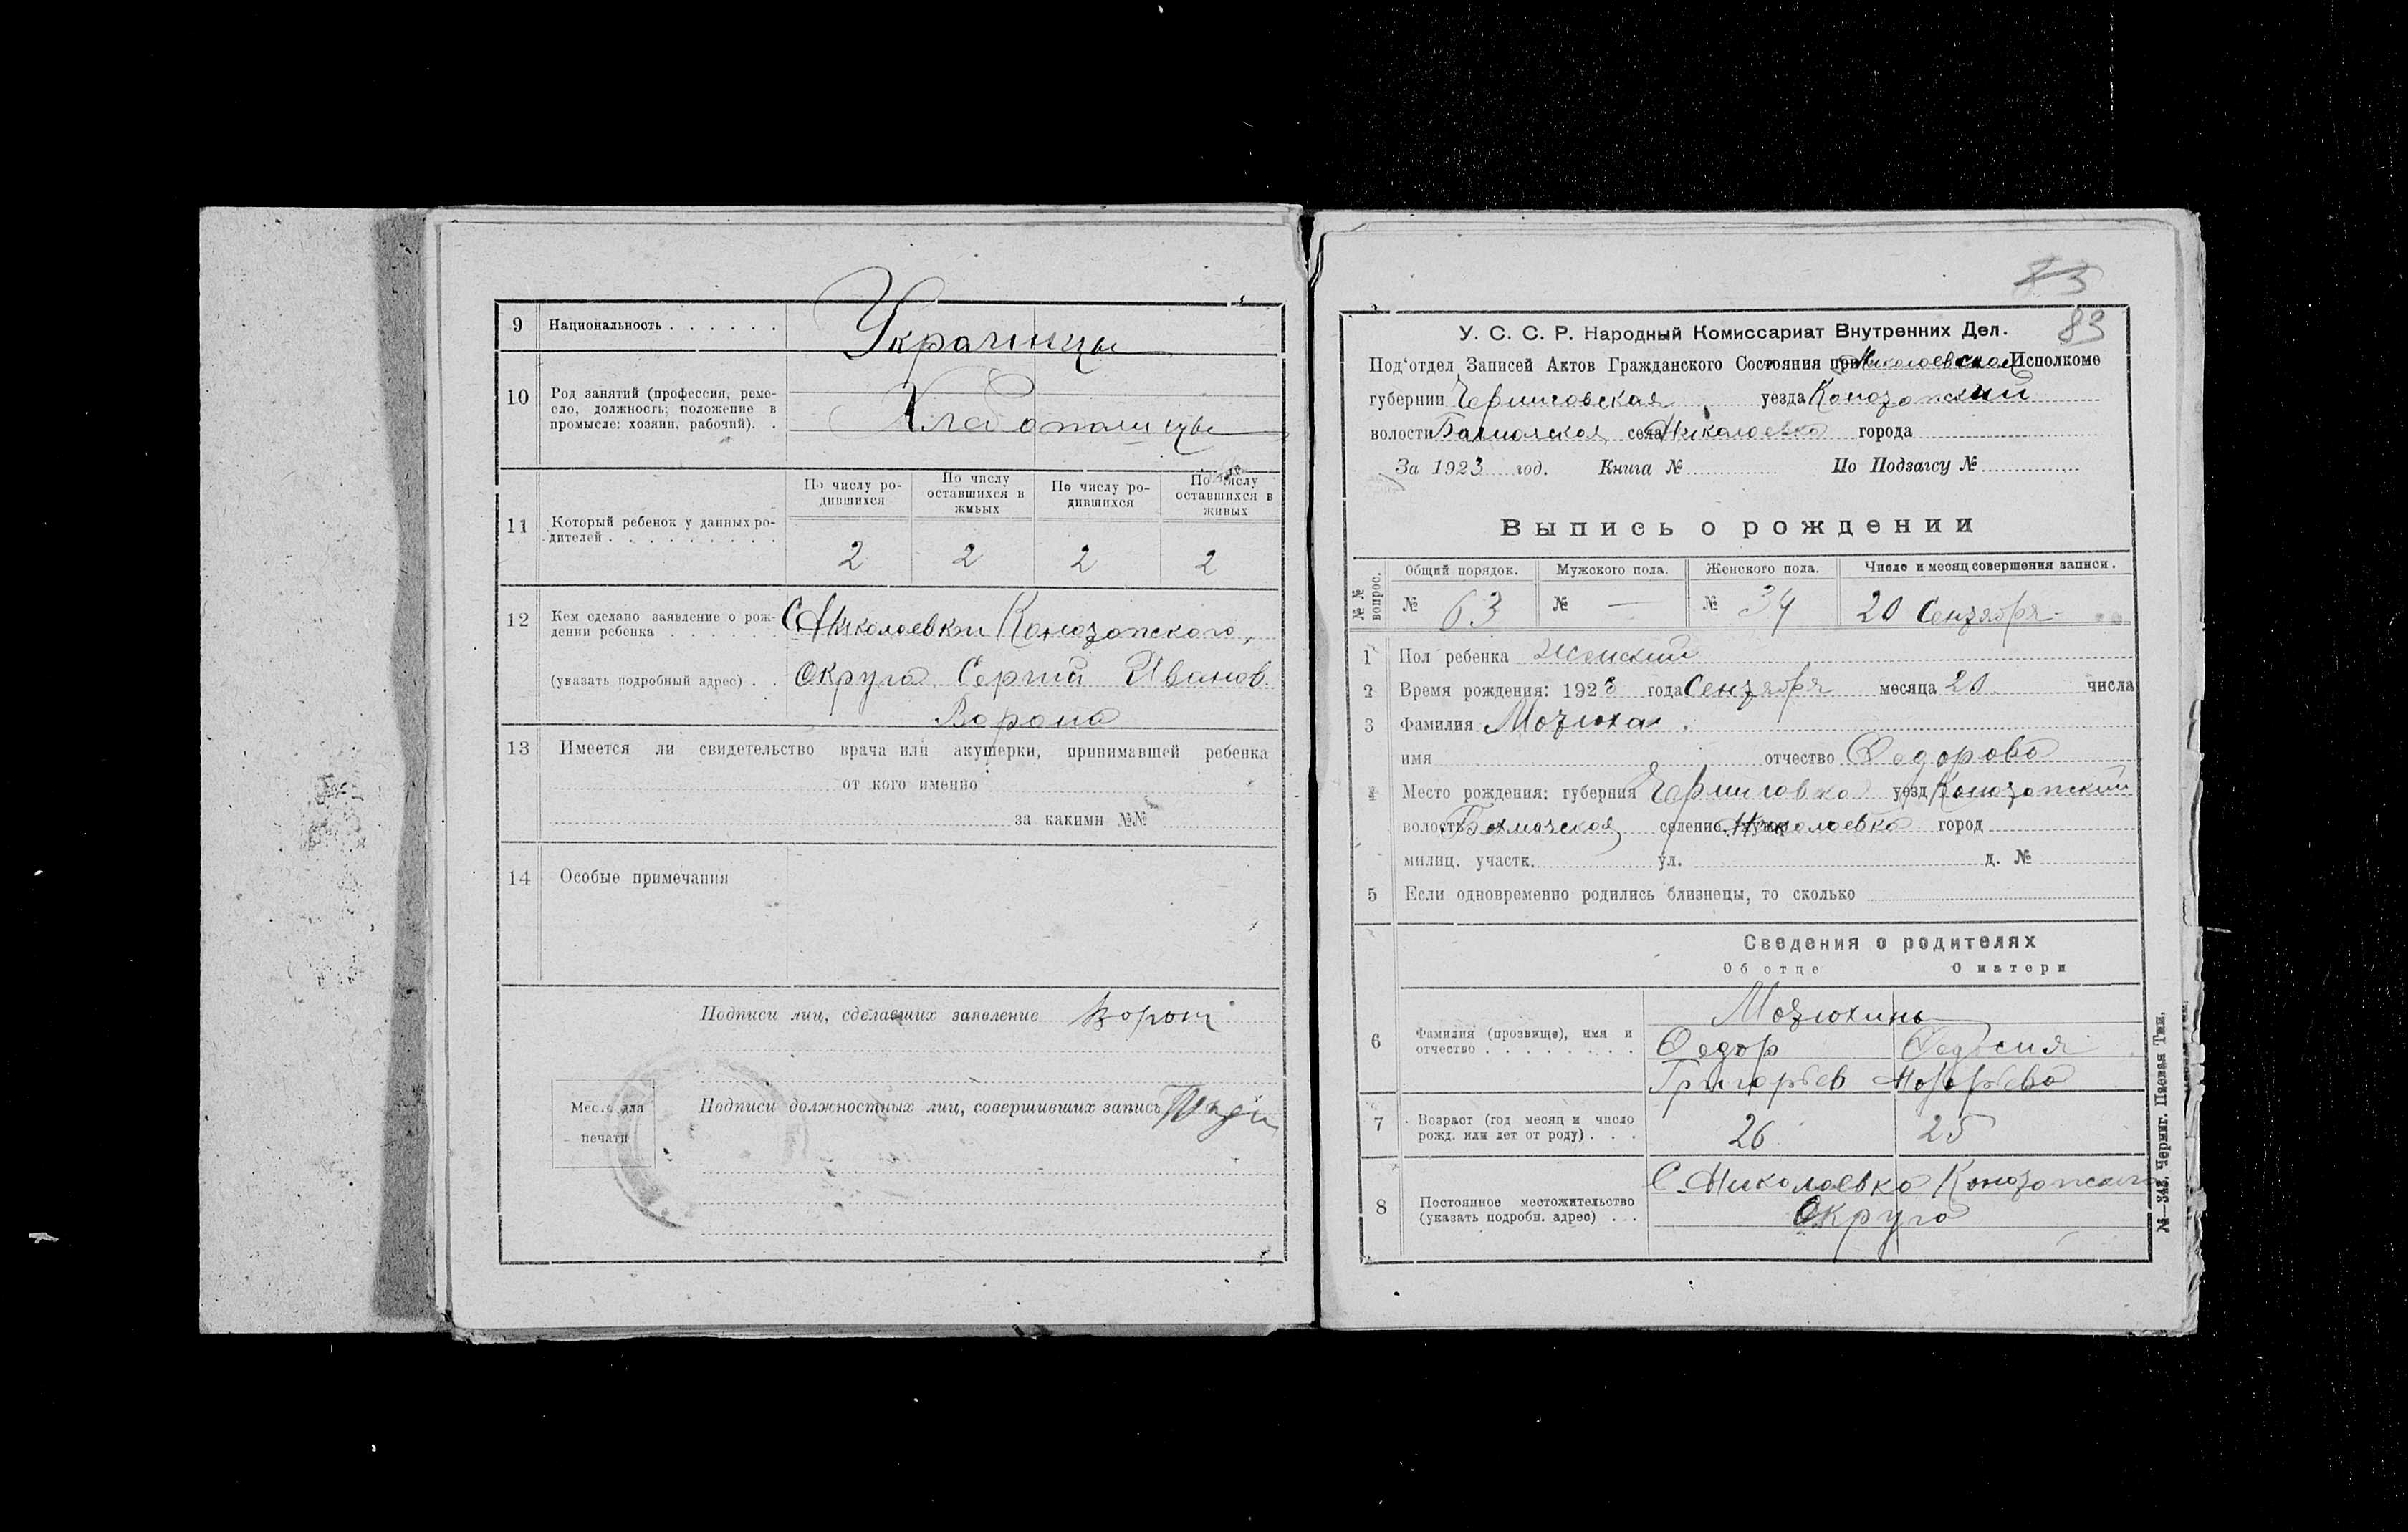 9 Национальность . . . . . . Украинцы
10 Род занятий (профессия, реме-
сло, должность; положение в
промысле: хозяин, рабочий). .
Хлебопашцы
По числу ро-
дившихся
По числу
оставшихся в
живых
По числу ро-
дившихся
По числу
оставшихся в
живых
11 Который ребенок у данных ро-
дителей . . . . . . . . .
2 2 2 2
12 Кем сделано заявление о рож-
дении ребенка . . . . . .
С Николаевки Конотопского,
(указать подробный адрес) . . Округа Сергий Иванов.
Ворона
13 Имеется ли свидетельство врача или акушерки, принимавшей ребенка
от кого именно
за какими №№
14 Особые примечания
Подписи лиц, сделавших заявление
Место для
печати
Подписи должностных лиц, совершивших запись
83
У. С. С. Р. Народный Комиссариат Внутренних Дел.
Под'отдел Записей Актов Гражданского Состояния при Николаевском Исполкоме
губернии Черниговская уезда Конотопский
волости Бахмачская села Николаевка города
За 1923 год. Книга № По Подзагсу №
Выпись о рождении
№ № вопрос.
Общий порядок. Мужского пола. Женского пола. Число и месяц совершения записи.
№ 63 № — № 34 20 Сентября
1 Пол ребенка Женский
2 Время рождения: 1923 года Сентября месяца 20 числа
3 Фамилия Мотюха
имя отчество Федорова
4 Место рождения: губерния Черниговка уезд Конотопский
волость Бахмачская селение Николаевка город
милиц. участк. ул. д. №
5 Если одновременно родились близнецы, то сколько
Сведения о родителях
Об отце О матери
6 Фамилия (прозвище), имя и
отчество . . . . . . . .
Мотюхины
Федор Федосия
Григорьев
7 Возраст (год месяц и число
рожд. или лет от роду) . . .
26 25
8 Постоянное местожительство
(указать подробн. адрес) . . .
С. Николаевка Конотопского
Округа
№—343. Черниг. Паевая Тип.